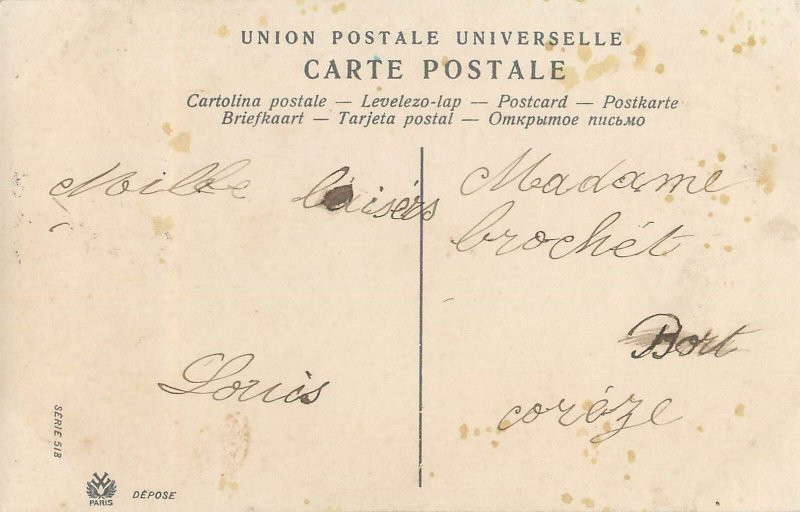 UNION POSTALE UNIVERSELLE
CARTE POSTALE
Cartolina postale — Levelezo-lap — Postcard — Postkarte
Briefkaart — Tarjeta postal — Открытое письмо
Mille baisérs
Louis
Madame
brochét
Bort
coréze
SÉRIE 518
PARIS
DÉPOSE